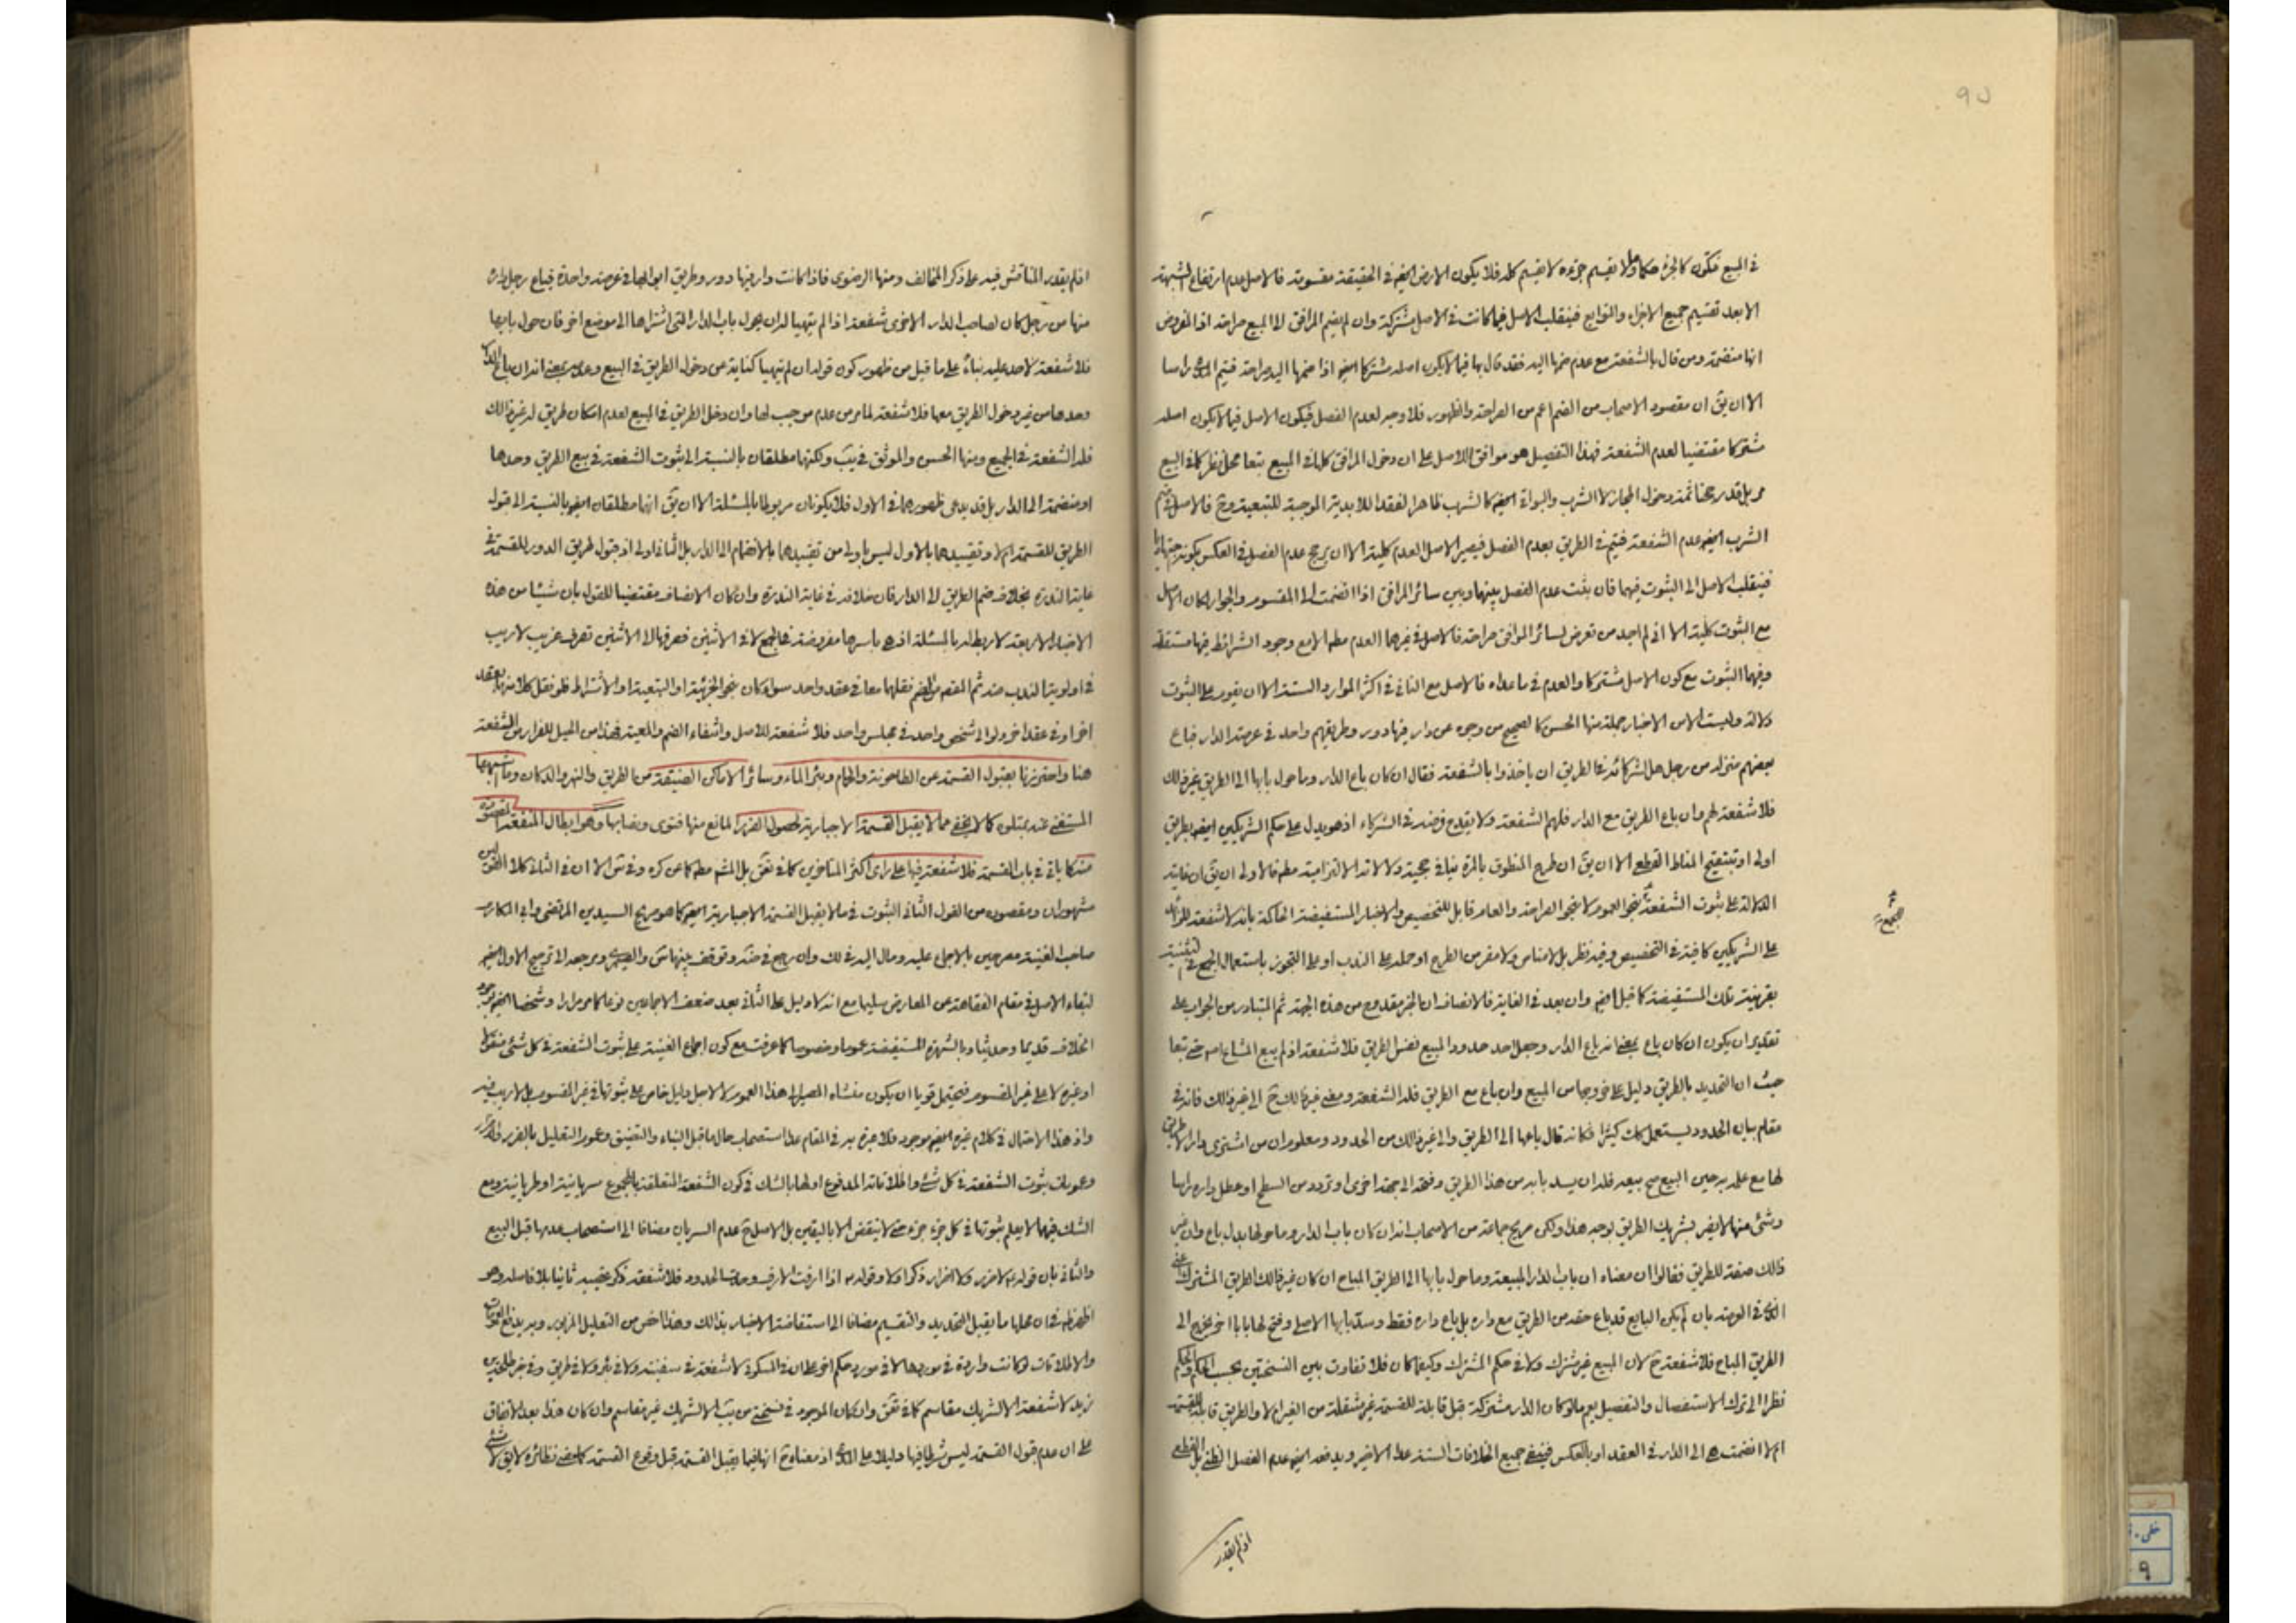 في المبيع فتكون كالجزء حكما ولا تقسيم جزءه لا تقسيم كله فلا يكون الارض ايضا في الحقيقة مقسومة فالاصل عدم ارتفاع الشبهة
الا بعد تقسيم جميع الاجزاء والتوابع فينقلب الاصل فيما كانت في الاصل مشتركة وان لم يضم المرافق الا المبيع صراحة اذ المفروض
انها منضمة ومن قال بالشفعة مع عدم ضمها اليه فقد قال بها فيما لا يكون اصله مشتركا ايضا اذا ضمها اليه صراحة فيتم راسا
الا ان يق ان مقصود الاصحاب من الضم اعم من الصراحة والظهور فلا وجه لعدم الفصل فيكون الاصل فيما لا يكون اصله
مشتركا مقتضيا لعدم الشفعة فهذا التفصيل هو موافق للاصل على ان دخول المرافق كلها في المبيع تبعا محل نظر كما في البيع
مر بل قد رجحنا ثمة دخول المجاز لا الشرب والبواقي ايضا كالشرب ظاهرا لفقد اللابدية الموجبة للتبعية وح فالاصل في
الشرب ايضا عدم الشفعة فيتم في الطريق بعدم الفصل فيصير الاصل العدم كلية الا ان يرجح عدم الفصل في العكس بكونه
فينقلب الاصل الى الثبوت فيهما فان ثبت عدم الفصل بينهما وبين سائر المرافق اذا انضمت الى المقسوم والجوار لكان الاصل
مع الثبوت كلية الا اني لم اجد من تعرض لسائر المرافق صراحة فالاصل في غيرهما العدم مطم الا مع وجود الشرائط فيها مستقلة
وفيهما الثبوت مع كون الاصل مشتركا والعدم في ما عداه فالاصل مع الثاني في اكثر الموارد الستة الا ان يقوم على الثبوت
دلالة وليست الا من الاخبار جملة منها الحسن كالصحيح من وجوه عن دار فيها دور وطريقهم واحد في عرصة الدار فباع
بعضهم منزله من رجل هل لشركائه في الطريق ان ياخذوا بالشفعة فقال ان كان باع الدار وما حول بابها الى الطريق غير ذلك
فلا شفعة لهم وان باع الطريق مع الدار فلهم الشفعة ولا يقدح فرضه في الشركاء اذ هو يدل على حكم الشريكين ايضا بطريق
اولى او بتنقيح المناط القطعي الا ان يق ان طرح المنطوق بالمرة ينافي حجية دلالاته الالتزامية مطم فالاولى ان يق ان غاية
الدلالة على ثبوت الشفعة بنحو العموم لا بنحو الصراحة والعام قابل للتخصيص والاخبار المستفيضة الحاكمة بانه لا شفعة
على الشريكين كافية في التخصيص وفيه نظر بل لا مناص ولا مفر من الطرح او حمله على الندب او على التجوز باستعمال الجمع في التثنية
بقرينة تلك المستفيضة كما قيل ايضا وان بعد في الغاية فالانصاف ان الخبر مقدوح من هذه الجهة ثم المتبادر من الجواب على
تقدير ان يكون ان كان باع بمعنى انه باع الدار وجعل احد حدود المبيع نفس الطريق فلا شفعة اذ لم يبع المشاع اصم حتى تبعا
حيث ان التحديد بالطريق دليل على خروجها من المبيع وان باع مع الطريق فله الشفعة ومعنى غير ذلك ح الى غير ذلك فانه في
مقام بيان الحدود يستعمل كك كثيرا فكانه قال باعها الى الطريق والى غير ذلك من الحدود ومعلوم ان من اشترى دارا لا طريق
لها مع علمه به حين البيع صح بيعه فله ان يسد بابه من هذا الطريق وفتحه الى جهة اخرى او تردد من السطح او عطل داره راسا
وشئ منها لا يضر بشريك الطريق بوجه هذا ولكن صريح جماعة من الاصحاب انه ان كان باب الدار وما حولها بدل باع وان غير
ذلك صفة للطريق فقالوا ان معناه ان باب الدار المبيعة وما حول بابها الى الطريق المباح ان كان غير ذلك الطريق المشترك
في العرصة بان لم يكن البايع قد باع حقه من الطريق مع داره بل باع داره فقط وسد بابها الاصلي وفتح لها بابا اخر يخرج الى
الطريق المباح فلا شفعة ح لان المبيع غير مشترك ولا في حكم المشترك وكيفما كان فلا تفاوت بين النسختين بحسب الحكم
نظرا الى ترك الاستفصال والتفصيل يعم ما لو كان الدار مشتركة قبل قابلة للقسمة غير منتقلة من الغير ام لا والطريق قابلة للقسمة
ام لا انضمت هي الى الدار في العقد او بالعكس فينفي جميع الخلافات الستة عدا الاخير ويدفعه ايضا عدم الفصل الظني بل القطعي
اذ لم يقدر
اذ لم يقدر المناقش فيه على ذكر المخالف ومنها الرضوي فاذا كانت دار فيها دور وطريق ابوابها في عرصة واحدة فباع رجل داره
منها من رجل كان لصاحب الدار الاخرى شفعة اذا لم يتهيا له ان يحول باب الدار التي اشتراها الى موضع اخر فان حول بابها
فلا شفعة لاحد عليه بناء على ما قيل من ظهور كون قوله ان لم يتهيا كناية عن دخول الطريق في البيع وعدمه بمعنى انه ان باع الدار
وحدها من غير دخول الطريق معها فلا شفعة لما مر من عدم موجب لها وان دخل الطريق في المبيع لعدم امكان طريق له غير ذلك
فله الشفعة في الجميع ومنها الحسن والموثق في يب ولكنهما مطلقان بالنسبة الى ثبوت الشفعة في بيع الطريق وحدها
او منضمة الى الدار بل قد يدعى ظهورهما في الاول فلا يكونان مربوطا بالمسئلة الا ان يق انهما مطلقان ايضا بالنسبة الى قبول
الطريق للقسمة ام لا وتقييدهما بالاول ليس باولى من تقييدهما بالانضمام الى الدار بل الثاني اولى اذ قبول طريق الدور للقسمة في
غاية الندرة بخلاف ضم الطريق الى الدار فان خلافه في غاية الندرة وان كان الانصاف مقتضيا للقول بان شيئا من هذه
الاخبار الاربعة لا ربط له بالمسئلة اذ هي باسرها مفروضة في الجمع لا في الاثنين فصرفها الى الاثنين تصرف غريب لا ريب
في اولوية الندب منه ثم المقصود من الضم نقلهما معا في عقد واحد سواء كان بنحو الجزئية او التبعية او الاشتراط فلو نقل كلا منهما بعقد
اخر او في عقد اخر ولو الى شخص واحد في مجلس واحد فلا شفعة للاصل وانتفاء الضم والمعية فهذا من الحيل للفرار من الشفعة
هنا واحترزنا بقبول القسمة عن الطاحونة والحمام وبئر الماء وسائر الاماكن الضيقة من الطريق والنهر والدكان وما اشبهها
كما لا يخفى مما لا يقبل القسمة الاجبارية لحصول الضرر المانع منها فتوى ونصا بها وهو ابطال المنفعة المقصودة
منه كما ياتي في باب القسمة فلا شفعة فيها على راي اكثر المتاخرين كما في تحق بل المشهور مطم كما عن كره وفي س الا ان في الثاني كلا القولين
مشهوران ومقصوده من القول الثاني الثبوت في ما لا يقبل القسمة الاجبارية ايضا كما هو صريح السيدين المرتضى وابي المكارم
صاحب الغنية مصرحين بالاجماع عليه ومال اليه في لك وان رجح في ضة وتوقف بينهما س والصيمري ومرجعه الى ترجيح الاول ايضا
لبقاء الاصل في مقام الفقاهة عن المعارض سليما مع انه لا دليل على الثاني بعد ضعف الاجماعين نوعا كما مر مرارا وشخصا ايضا بوجود
الخلاف قديما وحديثا وبالشهرة المستفيضة عموما وخصوصا كما عرفت مع كون اجماع الغنية على ثبوت الشفعة في كل شئ منقولا
او غيره لا على غير المقسوم فيحتمل قويا ان يكون منشاه المصير الى هذا العموم لا لاجل دليل خاص على ثبوتها في غير المقسوم بل لا ريب فيه
واذ هذا الاحتمال في كلام غيره ايضا موجود فلا عبرة به في المقام عدا استصحاب حال ما قبل البناء والتضيق وعموم التعليل بالضرر
وعمومات ثبوت الشفعة في كل شئ واطلاقاته المدفوع اولها بالشك في كون الشفعة المتعلقة بالمجموع سريانية او طريانية ومع
الشك فيهما لا يعلم ثبوتها في كل جزء جزء حتى لا ينقض الا باليقين بل الاصل ح عدم السريان مضافا الى استصحاب عدمها قبل البيع
والثاني بان قوله لا ضرر ولا اضرار ذكر اولا وقوله اذا ارفت الارف وحدت الحدود فلا شفعة ذكر عقيبه ثانيا بلا فاصلة وهو
اظهر في ان محلها ما يقبل التحديد والتقسيم مضافا الى استفاضة الاخبار بذلك وهذا اخص من التعليل المزبور وبه يدفع العمومات
والاطلاقات لو كانت واردة في موردها لا في مورد حكم اخر على ان في السكوني لا شفعة في سفينة ولا في نهر ولا في طريق وفي خبر طلحة بن
زيد لا شفعة الا لشريك مقاسم كما في تحق وان كان الموجود في نسختي من يب الا لشريك غير مقاسم وان كان هذا بعد الاتفاق
على ان عدم قبول القسمة ليس شرطا فيها دليلا على اذ معناه ح انها فيما يقبل القسمة قبل وقوع القسمة كما مضى نظائره لا يق